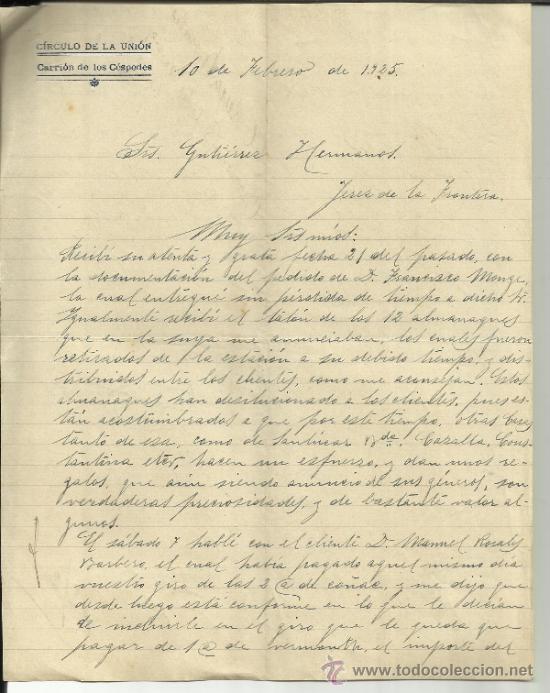 CÍRCULO DE LA UNIÓN
Carrión de los Céspedes
10 de Febrero de 1925.
Srs. Gutiérrez Hermanos.
Jerez de la Frontera.
Muy Srs mios:
Recibí su atenta y grata fecha 21 del pasado, con
la documentación del pedido de D. Francisco Monge,
la cual entregué sin pérdida de tiempo a dicho Sr.
Igualmente recibí el talón de los 12 almanaques
que en la suya me anunciaban, los cuales fueron
retirados de la estación a su debido tiempo, y dis-
tribuidos entre los clientes, como me aconsejan. Estos
almanaques han desilucionado a los clientes, pues es-
tán acostumbrados a que por este tiempo, otras Casas
tanto de esa, como de Sanlucar Bda, Cazalla, Cons-
tantina etc, hacen un esfuerzo, y dan unos re-
galos, que aun siendo anuncio de sus géneros, son
verdaderas preciosidades, y de bastante valor al-
gunos.
El sábado 7 hablé con el cliente D. Manuel Rosales
Barbero, el cual había pagado aquel mismo día
vuestro giro de las 2 @ de coñac, y me dijo que
desde luego está conforme en lo que le decian
de incluirle en el giro que le queda que
pagar de 1 @ de vermouth, el importe del
www.todocoleccion.net